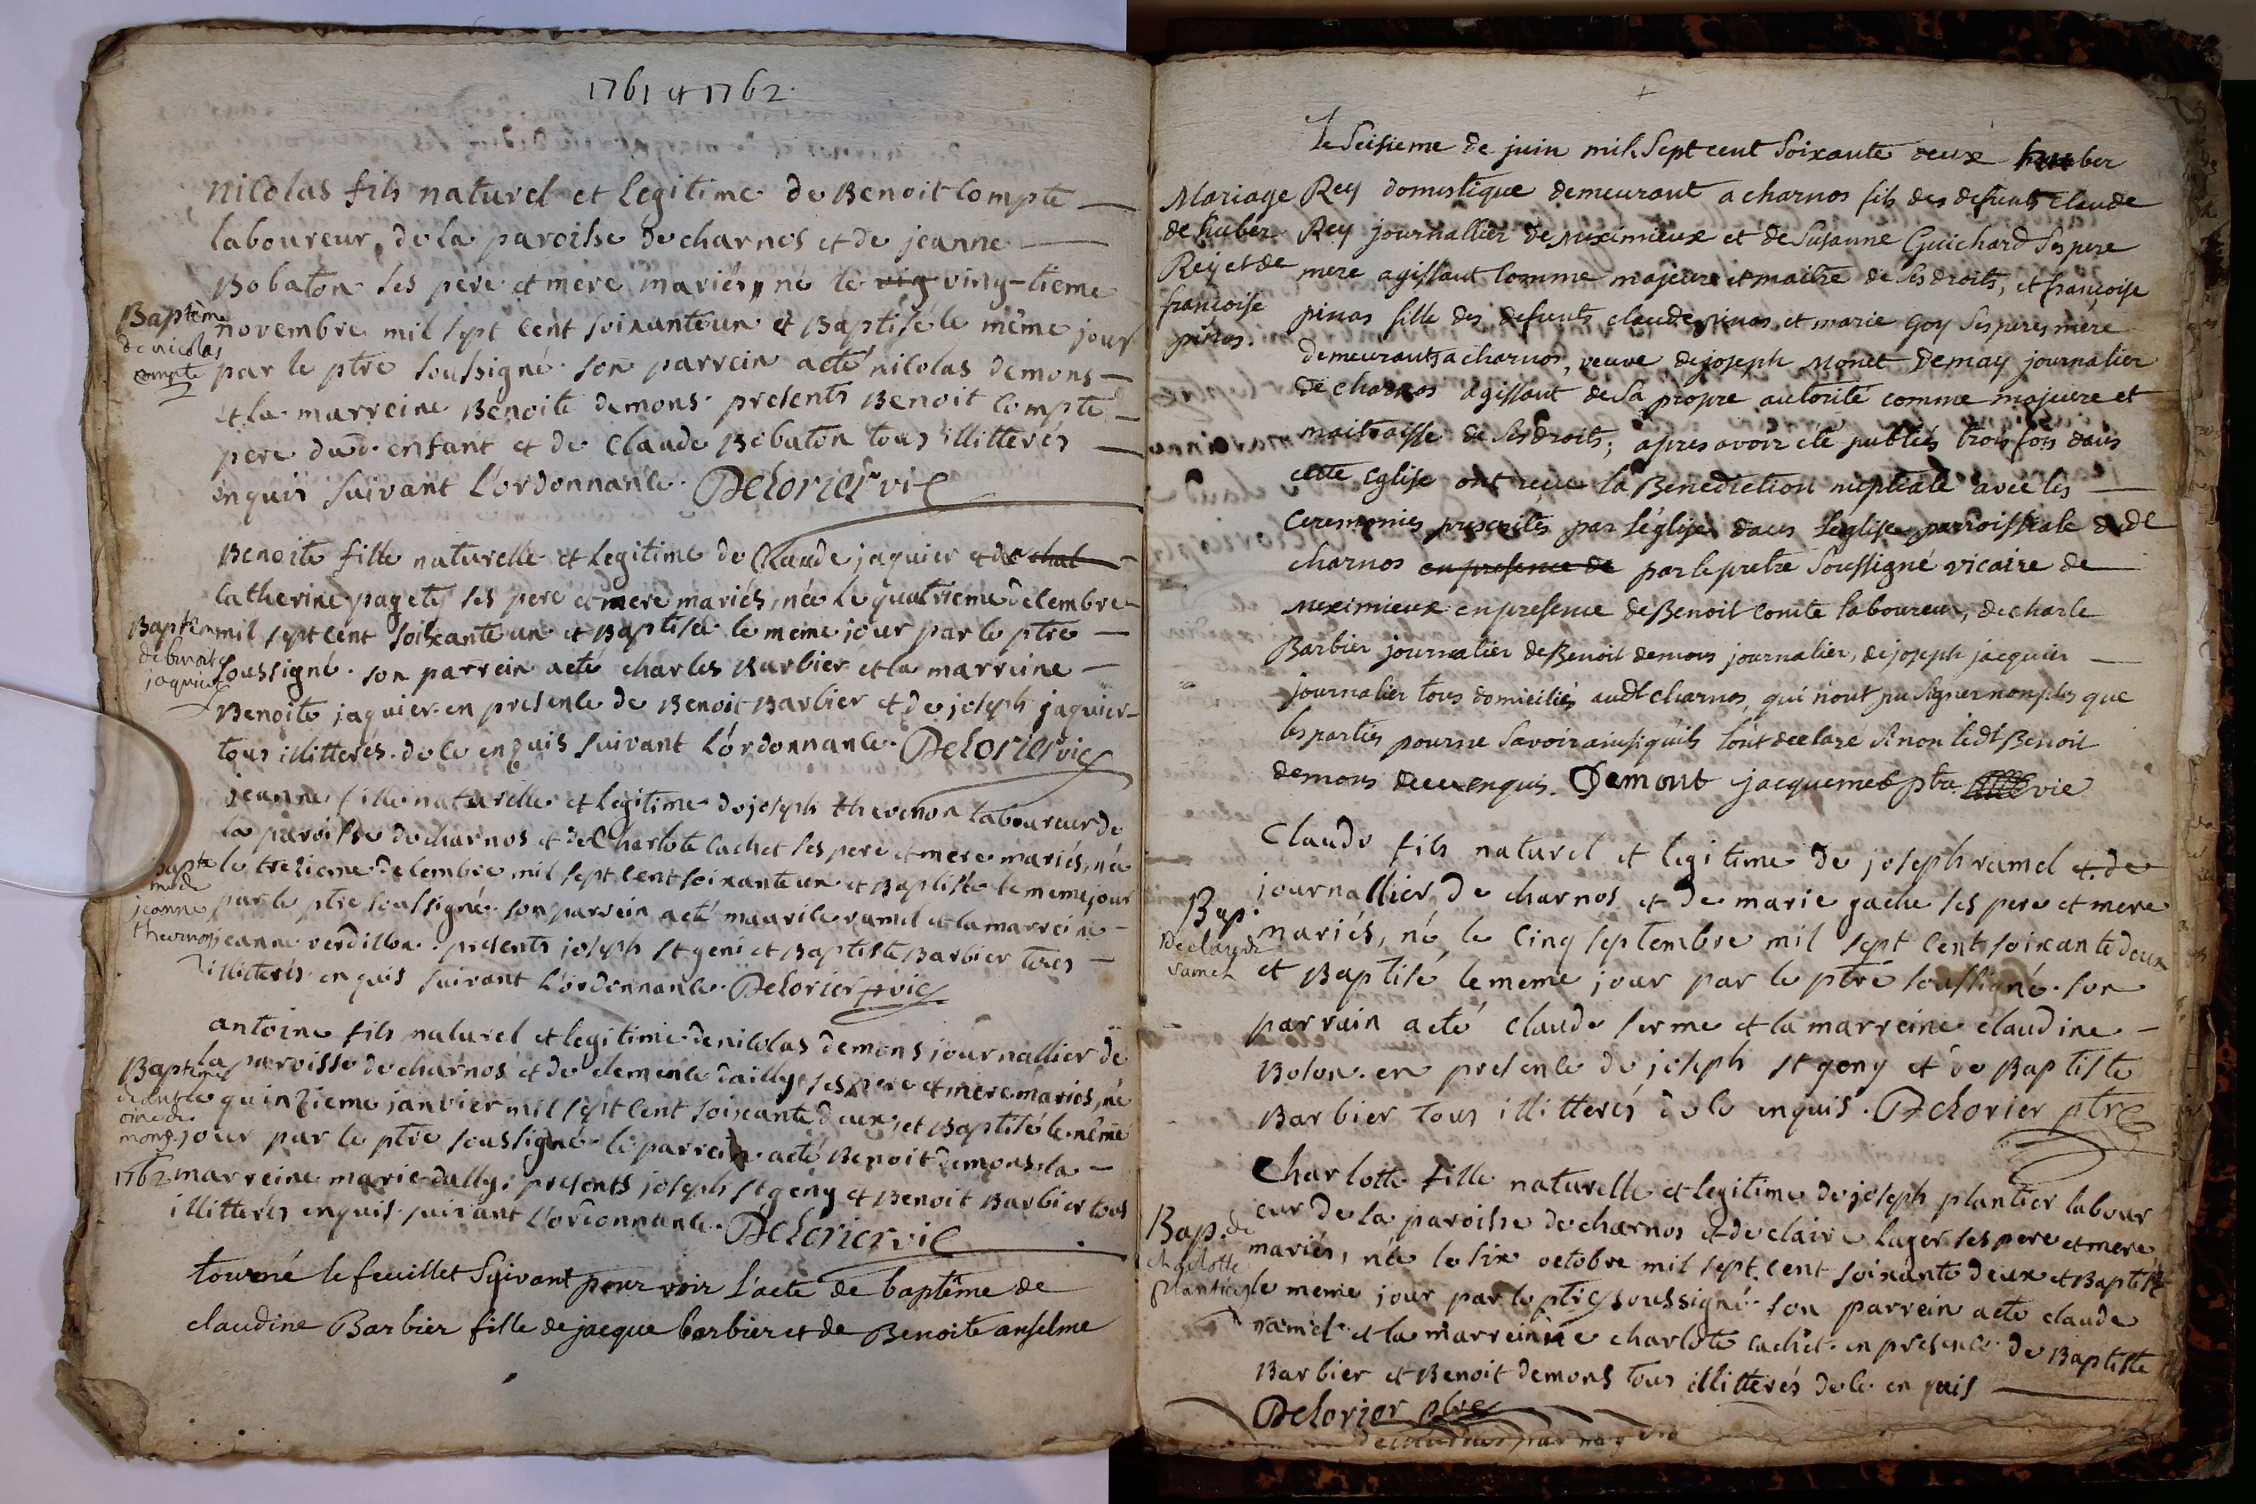 1761 et 1762.
nicolas fils naturel et legitime de Benoit Compte
laboureur de la paroisse de charnos et de jeanne
Bobaton ses pere et mere mariés, né le vig ving-tieme
Baptême
de nicolas
compte
novembre mil sept cent soixante un et Baptisé le même jour
par le ptre soussigné. son parrein acté nicolas demons
et la marreine Benoite demons. presents Benoit Compte
pere dud. enfant et de Claude Bobaton tous illitterés
enquis suivant L'ordonnance. Delorier vic
Benoite fille naturelle et legitime de Claude jaquier et de chat
Catherine pagety ses pere et mere mariés, née le quatrieme decembre
Baptem
de benoite
jaquier
mil sept cent soixante un et Baptisée le meme jour par le ptre
soussigné. son parrein acté charles Barbier et la marreine
Benoite jaquier. en presence de Benoit Barbier et de joseph jaquier
tous illitterés. de ce enquis suivant L'ordonnance. Delorier vic
jeanne fille naturelle et legitime de joseph thevenon laboureur de
la paroisse de charnos et de Charlote Cachet ses pere et mere mariés, née
Bapte
me de
jeanne
thevenon
le trezieme decembre mil sept cent soixante un et Baptisée le meme jour
par le ptre soussigné. son parrein acté maurile ramel et la marreine
jeanne verdillon. presents joseph st geni et Baptiste Barbier tous
illitterés enquis suivant L'ordonnance. Delorier vic
antoine fils naturel et legitime de nicolas demons journallier de
la paroisse de charnos et de clemence dailly ses pere et mere mariés, né
Baptême
d'anto
oine de
mons
1762
le quinzieme janvier mil sept cent soixante deux et Baptisé le même
jour par le ptre soussigné. le parrein acté Benoit demons la
marreine marie dally. presents joseph st geny et Benoit Barbier tous
illitterés enquis suivant L'ordonnance. Delorier vic
tourné le feuillet Suivant pour voir l'acte de baptême de
claudine Barbier fille de jacque barbier et de Benoite anselme
Le Seisieme de juin mil Sept cent Soixante deux huber
Mariage
de huber
Rey et de
francoise
pinos.
Rey domestique demeurant a charnos fils des defunts Claude
Rey journallier de meximieux et de Susanne Guichard Ses pere
mere agissant Comme majeure et maitre de ses droits, et françoise
pinas fille des defunts claude pinas et marie Goy Ses peres mere
demeurants a charnos, veuve de joseph Monet Demay journalier
de charnos agissant de Sa propre autorité comme majeure et
maitraisse de Ses droits; apres avoir été publiés trois fois dans
cette Eglise ont reçue la Benediction nuptiale avec les
Ceremonies prescrites par l'église dans l'eglise parroissiale dudt
charnos en presence de par le pretre Soussigné vicaire de
meximieux en presence de Benoit comte laboureur, de charle
Barbier journalier de Benoit demons journalier, de joseph jacquier
journalier tous domiciliés audt charnos, qui n'ont pu signer non plus que
les parties pour ne Savoir ainsi qu'ils l'ont declaré Sinon ledt Benoit
demons de ce enquis. Demont jacquemet ptre vic
Claude fils naturel et legitime de joseph ramel et de
journallier de charnos et de marie gache ses pere et mere
Bap.
De claude
ramel
mariés, né le cinq septembre mil sept cent soixante deux
et Baptisé le meme jour par le ptre soussigné. son
parrain acté claude ferme et la marreine claudine
Bolon. en presence de joseph st geny et de Baptiste
Barbier tous illitterés de ce enquis. Delorier ptre
Charlotte fille naturelle et legitime de joseph plantier labour
eur de la paroisse de charnos et de claire Lager ses pere et mere
Bap. de
charlotte
plantier
mariés, née le six octobre mil sept cent soixante deux et Baptisée
le meme jour par le ptre soussigné. son parrein acté claude
ramel et la marreinne charlote cachet. en presence de Baptiste
Barbier et Benoit demons tous illitterés de ce enquis
Delorier ptre